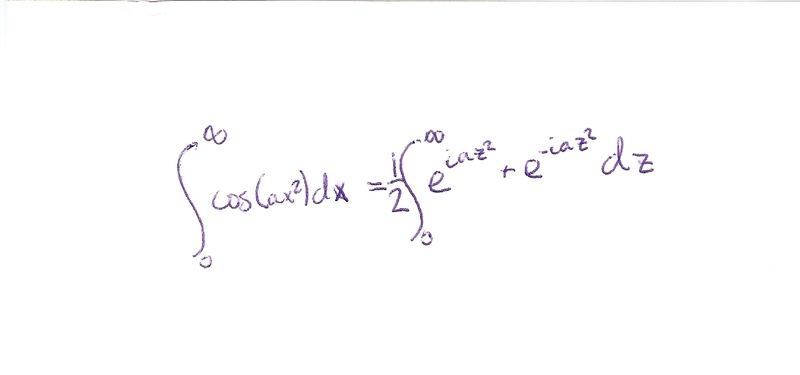 ∫₀^∞ cos(ax²)dx = 1/2 ∫₀^∞ e^{iaz²} + e^{-iaz²} dz